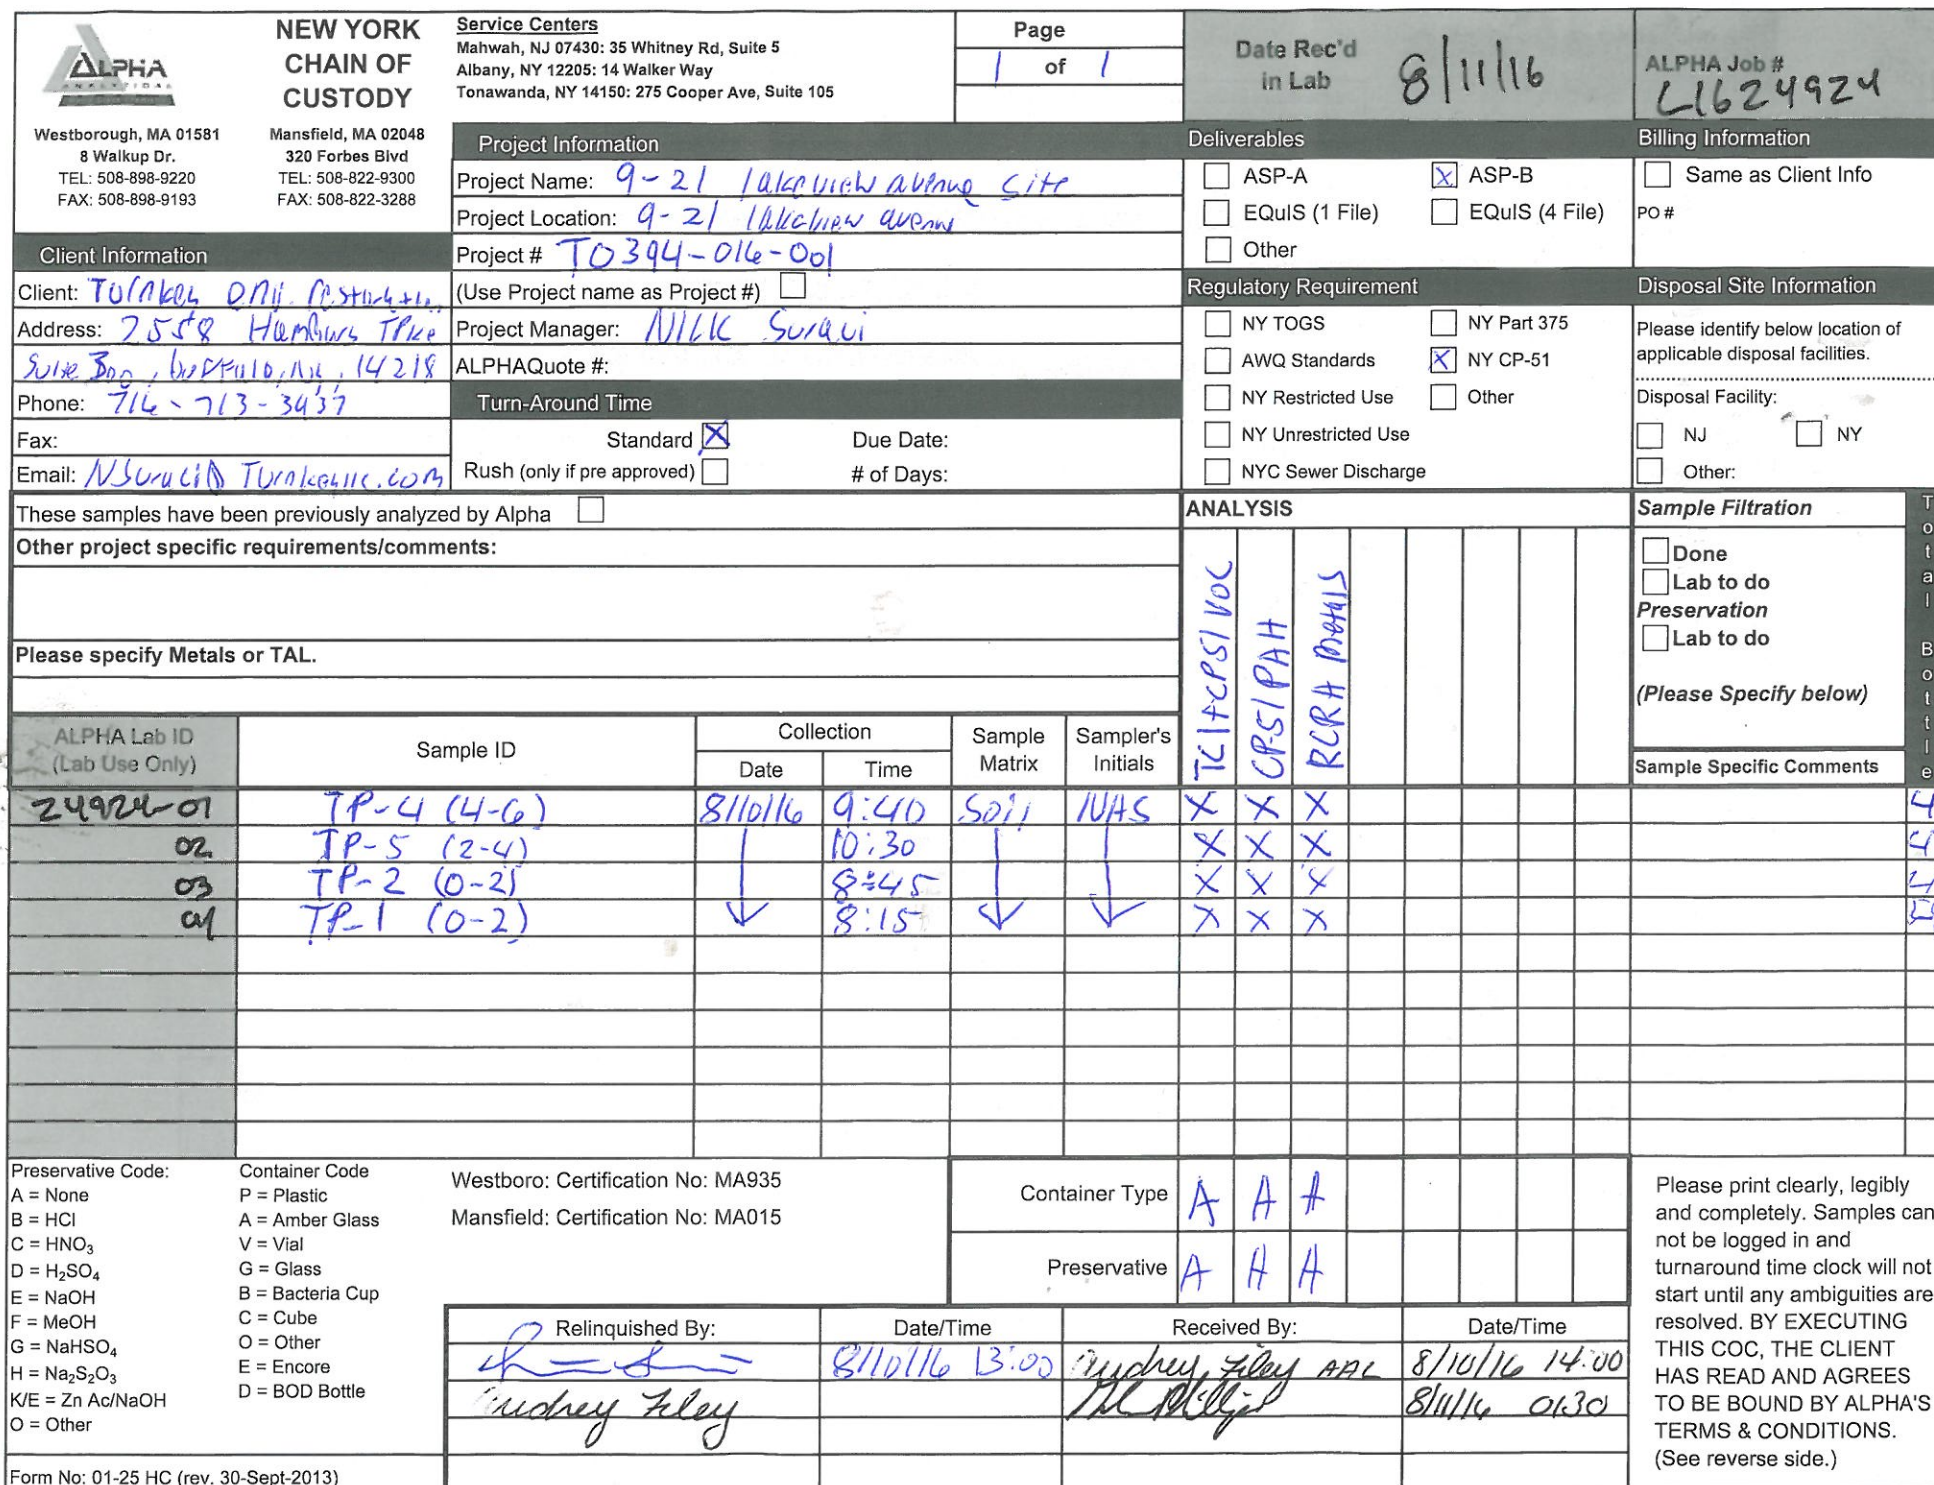 ALPHA
ANALYTICAL
NEW YORK
CHAIN OF
CUSTODY
Westborough, MA 01581
8 Walkup Dr.
TEL: 508-898-9220
FAX: 508-898-9193
Mansfield, MA 02048
320 Forbes Blvd
TEL: 508-822-9300
FAX: 508-822-3288
Service Centers
Mahwah, NJ 07430: 35 Whitney Rd, Suite 5
Albany, NY 12205: 14 Walker Way
Tonawanda, NY 14150: 275 Cooper Ave, Suite 105
Page
1 of 1
Date Rec'd
in Lab
8/11/16
ALPHA Job #
L1624924
Client Information
Client: Turnkey
Address: 2558 Hamburg TPke
Suite 300, buffalo, NY, 14218
Phone: 716-713-3937
Fax:
Email: NSuraci@Turnkeyllc.com
Project Information
Project Name: 9-21 lakeview avenue site
Project Location: 9-21 lakeview avenue
Project # T0394-016-001
(Use Project name as Project #)
Project Manager: Nick Suraci
ALPHAQuote #:
Turn-Around Time
Standard X Due Date:
Rush (only if pre approved) # of Days:
Deliverables
ASP-A X ASP-B
EQuIS (1 File) EQuIS (4 File)
Other
Regulatory Requirement
NY TOGS NY Part 375
AWQ Standards X NY CP-51
NY Restricted Use Other
NY Unrestricted Use
NYC Sewer Discharge
Billing Information
Same as Client Info
PO #
Disposal Site Information
Please identify below location of
applicable disposal facilities.
Disposal Facility:
NJ NY
Other:
These samples have been previously analyzed by Alpha
Other project specific requirements/comments:
Please specify Metals or TAL.
ANALYSIS
TCl+CP51 VOC
CP-51 PAH
RCRA Metals
Sample Filtration
Done
Lab to do
Preservation
Lab to do
(Please Specify below)
Total Bottle
ALPHA Lab ID
(Lab Use Only)
Sample ID
Collection
Date Time
Sample
Matrix
Sampler's
Initials
Sample Specific Comments
24924-01 TP-4 (4-6) 8/10/16 9:40 Soil NAS X X X 4
02 TP-5 (2-4) 10:30 X X X 4
03 TP-2 (0-2) 8:45 X X X 4
04 TP-1 (0-2) 8:15 X X X
Preservative Code:
A = None
B = HCl
C = HNO₃
D = H₂SO₄
E = NaOH
F = MeOH
G = NaHSO₄
H = Na₂S₂O₃
K/E = Zn Ac/NaOH
O = Other
Container Code
P = Plastic
A = Amber Glass
V = Vial
G = Glass
B = Bacteria Cup
C = Cube
O = Other
E = Encore
D = BOD Bottle
Westboro: Certification No: MA935
Mansfield: Certification No: MA015
Container Type A A A
Preservative A A A
Relinquished By: Date/Time Received By: Date/Time
8/10/16 13:00 Audrey Filey AAL 8/10/16 14:00
Audrey Filey 8/11/16 0130
Please print clearly, legibly
and completely. Samples can
not be logged in and
turnaround time clock will not
start until any ambiguities are
resolved. BY EXECUTING
THIS COC, THE CLIENT
HAS READ AND AGREES
TO BE BOUND BY ALPHA'S
TERMS & CONDITIONS.
(See reverse side.)
Form No: 01-25 HC (rev. 30-Sept-2013)